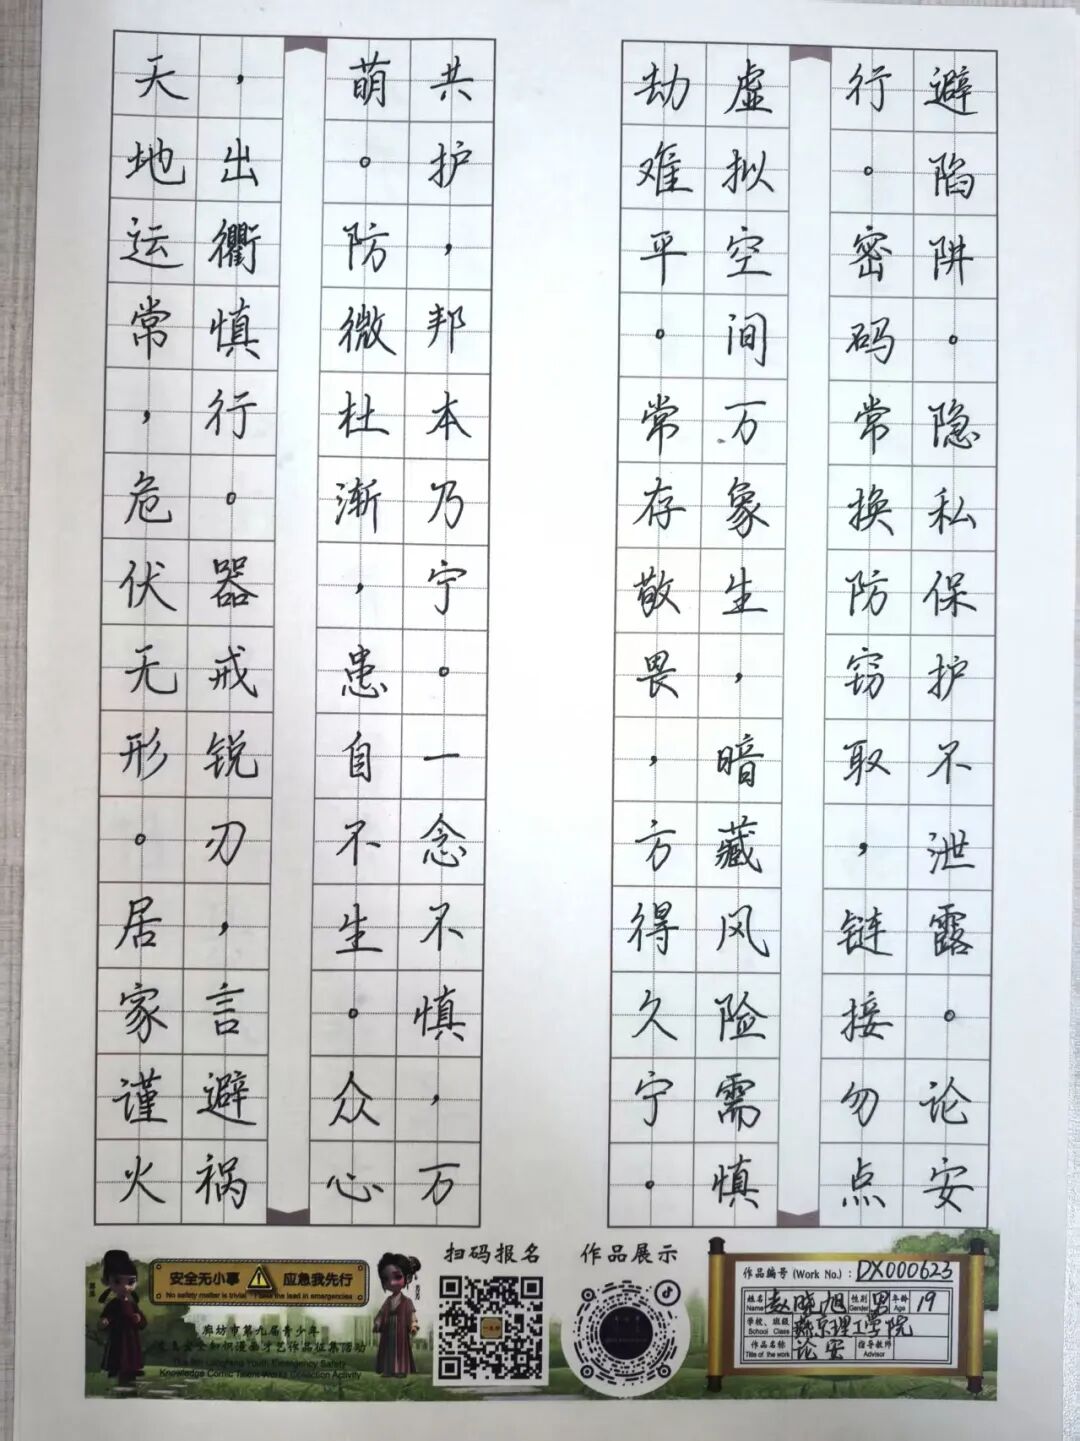 天地运常，危伏无形。居家谨火
，出衢慎行。器戒锐刃，言避祸
萌。防微杜渐，患自不生。众心
共护，邦本乃宁。一念不慎，万
劫难平。常存敬畏，方得久宁。
虚拟空间万象生，暗藏风险需慎
行。密码常换防窃取，链接勿点
避陷阱。隐私保护不泄露。论安
安全无小事 应急我先行
No safety matter is trivial Take the lead in emergencies
廊坊市第九届青少年
应急安全知识漫画才艺作品征集活动
The 9th Langfang Youth Emergency Safety
Knowledge Comic Talent Works Collection Activity
扫码报名
作品展示
作品编号 (Work No.)：DX000623
姓名 Name 赵晓旭 性别 Gender 男 年龄 Age 19
学校、班级 School Class 燕京理工学院
作品名称 Title of the work 论安 指导教师 Advisor